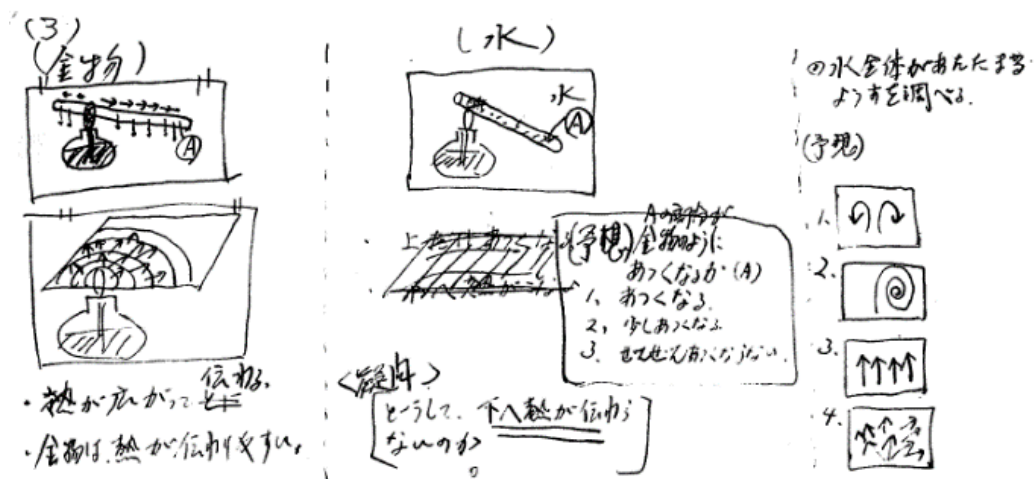 (3)
(金物)
Ⓐ
・熱が広がって伝わる。
・金物は熱が伝わりやすい。
(水)
水
Ⓐ
(予想)
Aの部分が
金物のように
あつくなるか(A)
1、あつくなる。
2、少しあつくなる
3、ぜんぜんあつくならない。
<疑問>
どうして、下へ熱が伝わら
ないのか。
水全体があたたまる
ようすを調べる。
(予想)
1.
2.
3.
4.